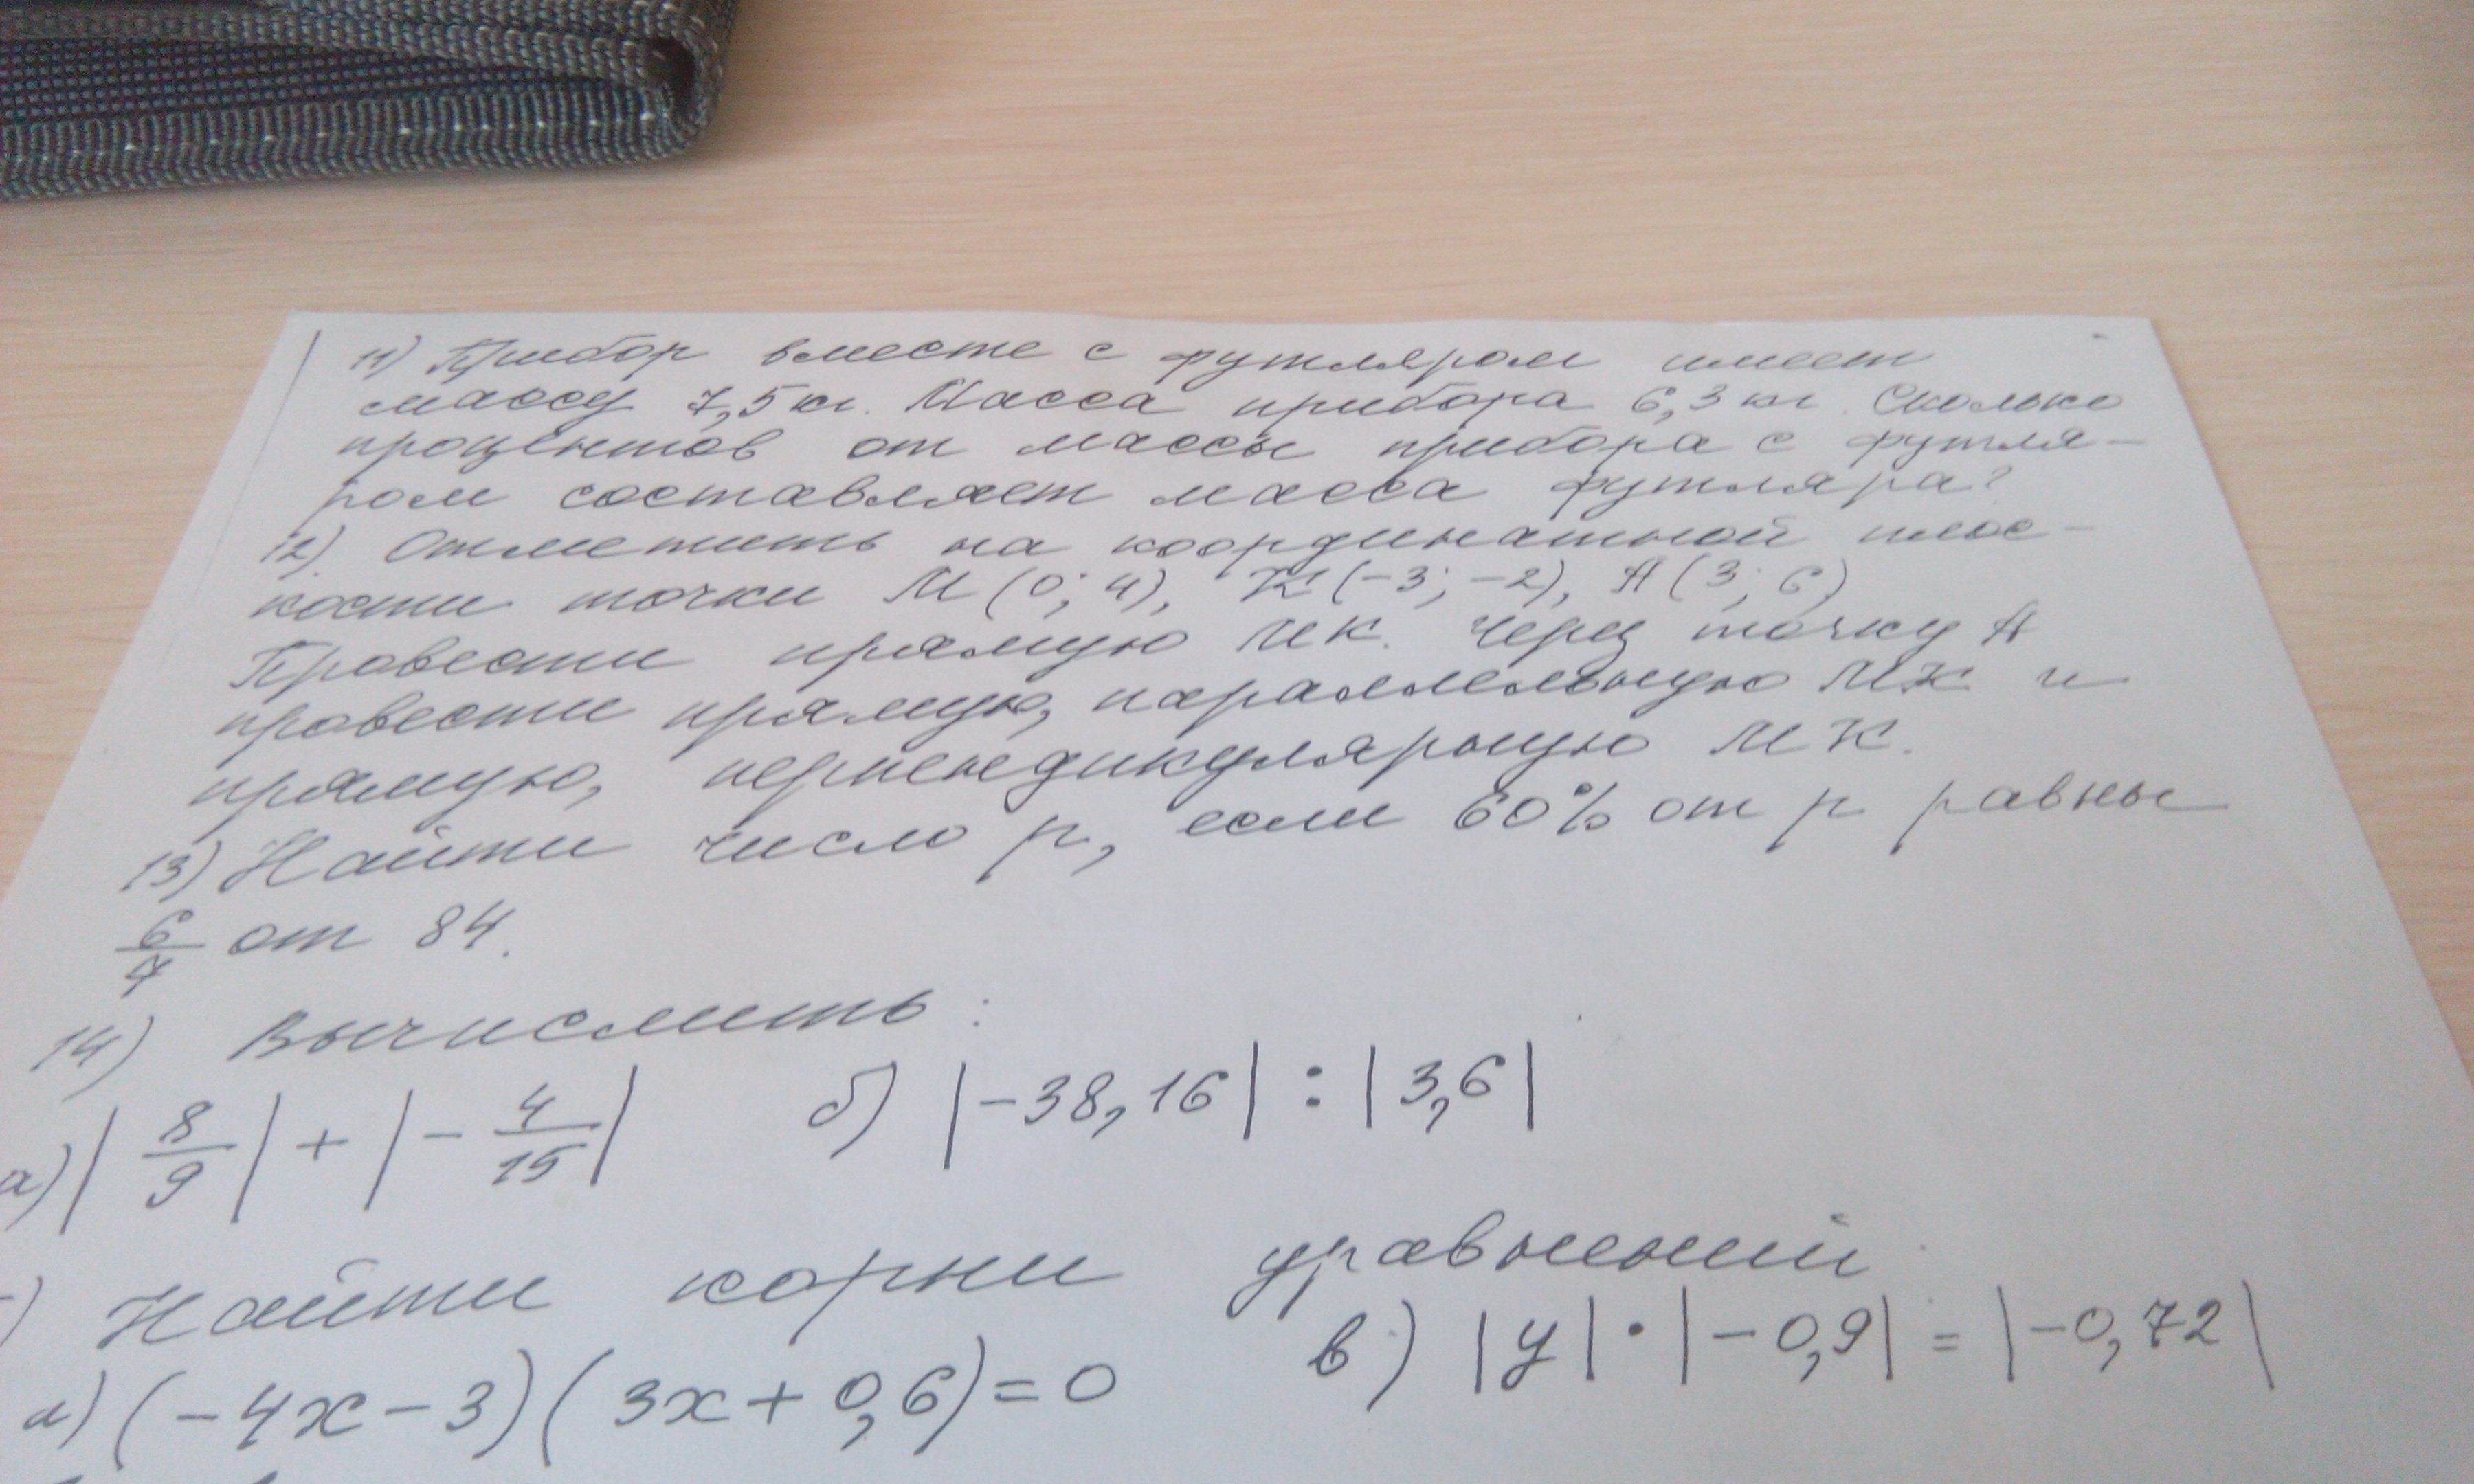 11) Прибор вместе с футляром имеет
массу 7,5 кг. Масса прибора 6,3 кг. Сколько
процентов от массы прибора с футля-
ром составляет масса футляра?
12) Отметить на координатной плос-
кости точки М (0; 4), К (-3; -2), А (3; 6)
Провести прямую МК. Через точку А
провести прямую, параллельную МК и
прямую, перпендикулярную МК.
13) Найти число p, если 60% от p равны
6/7 от 84.
14) Вычислить:
а) |8/9| + |-4/15| б) |-38,16| : |3,6|
) Найти корни уравнений
а) (-4x-3)(3x+0,6)=0 в) |y|·|-0,9| = |-0,72|